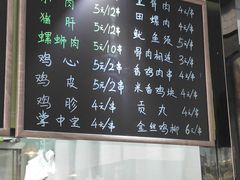 肉 5元/12串
猪肝 5元/12串
螺蛳肉 5元/10串
鸡心 5元/2串
鸡皮 5元/2串
鸡珍 4元/串
掌中宝 4元/串
骨肉 4元/串
田螺肉 4元/串
鱿鱼须 5元/串
骨肉相连 3元/串
香鸡肉串 4元/串
米香鸡块 4元/串
贡丸 4元/串
金丝鸡柳 6元/串